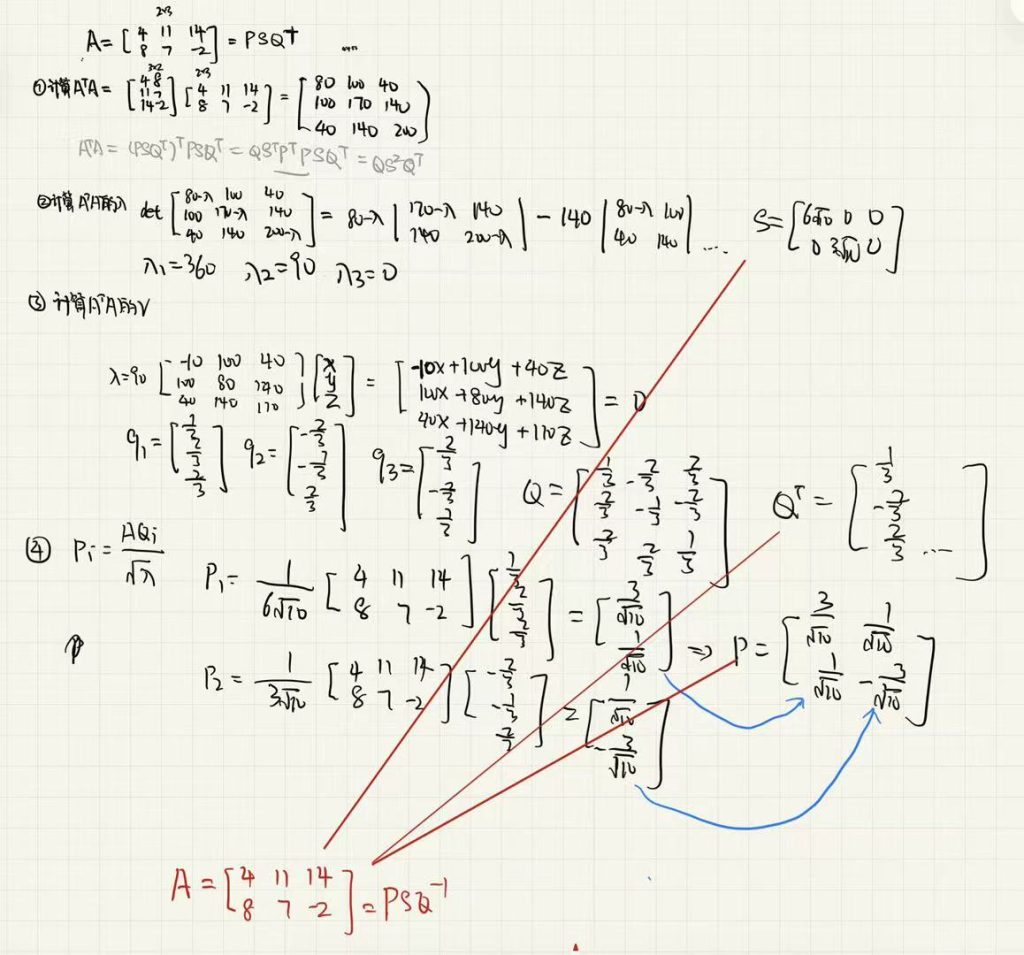 2×3
A = [4 11 14; 8 7 -2] = PSQᵀ ...
3×2 2×3
①计算AᵀA = [4 8; 11 7; 14 -2] [4 11 14; 8 7 -2] = [80 100 40; 100 170 140; 40 140 200]
AᵀA = (PSQᵀ)ᵀPSQᵀ = QSᵀPᵀPSQᵀ = QS²Qᵀ
②计算AᵀA的λ det [80-λ 100 40; 100 170-λ 140; 40 140 200-λ] = 80-λ |170-λ 140; 140 200-λ| - 140 |80-λ 100; 40 140| ...
S = [6√10 0 0; 0 3√10 0]
λ1=360 λ2=90 λ3=0
③ 计算AᵀA的V
λ=90 [-10 100 40; 100 80 140; 40 140 110] [x; y; z] = [-10x+100y+40z; 100x+80y+140z; 40x+140y+110z] = 0
q1 = [1/3; 2/3; 2/3] q2 = [-2/3; -1/3; 2/3] q3 = [2/3; -2/3; 1/3] Q = [1/3 -2/3 2/3; 2/3 -1/3 -2/3; 2/3 2/3 1/3] Qᵀ = [1/3; -2/3; 2/3 ...]
④ Pi = AQi/√λ
P1 = 1/6√10 [4 11 14; 8 7 -2] [1/3; 2/3; 2/3] = [3/√10; 1/√10] => P = [3/√10 1/√10; 1/√10 -3/√10]
P
P2 = 1/3√10 [4 11 14; 8 7 -2] [-2/3; -1/3; 2/3] = [1/√10; -3/√10]
A = [4 11 14; 8 7 -2] = PSQ⁻¹